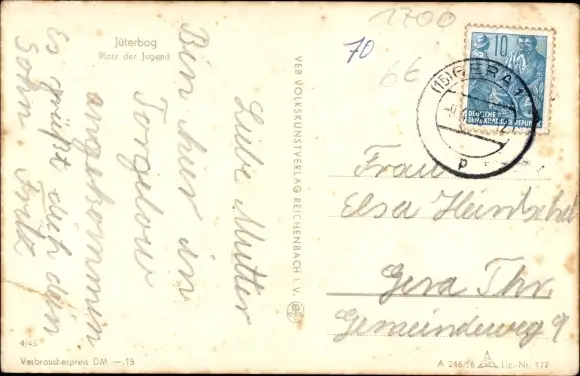 Jüterbog
Platz der Jugend
Liebe Mutter
Bin hier in
Torgelow
angekommen
Es grüßt dich dein
Sohn Fritz
VEB VOLKSKUNSTVERLAG REICHENBACH I. V.
1700
70
6€
10
DEUTSCHE
DEMOKRATISCHE REPUBLIK
(15) GERA 1
p
Frau
Elsa Hentschel
Gera Thr.
Gemeindeweg 9
4/45
Verbraucherpreis DM —.15
A 246/56
Lic.-Nr. 172